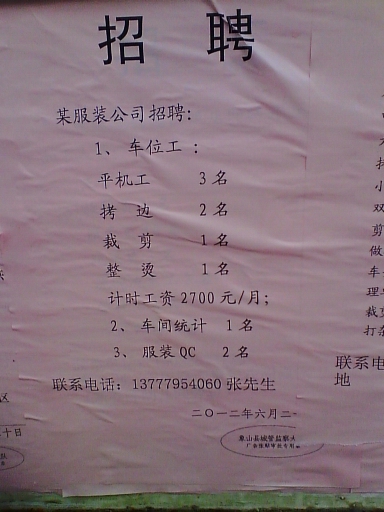 招 聘
某服装公司招聘:
1、车位工:
平机工 3名
拷 边 2名
裁 剪 1名
整 烫 1名
计时工资2700元/月;
2、车间统计 1名
3、服装QC 2名
联系电话:13777954060 张先生
二〇一二年六月二
象山县城管监察大
小
双
剪
做
车
理
裁
打
联系电
地
区
十日